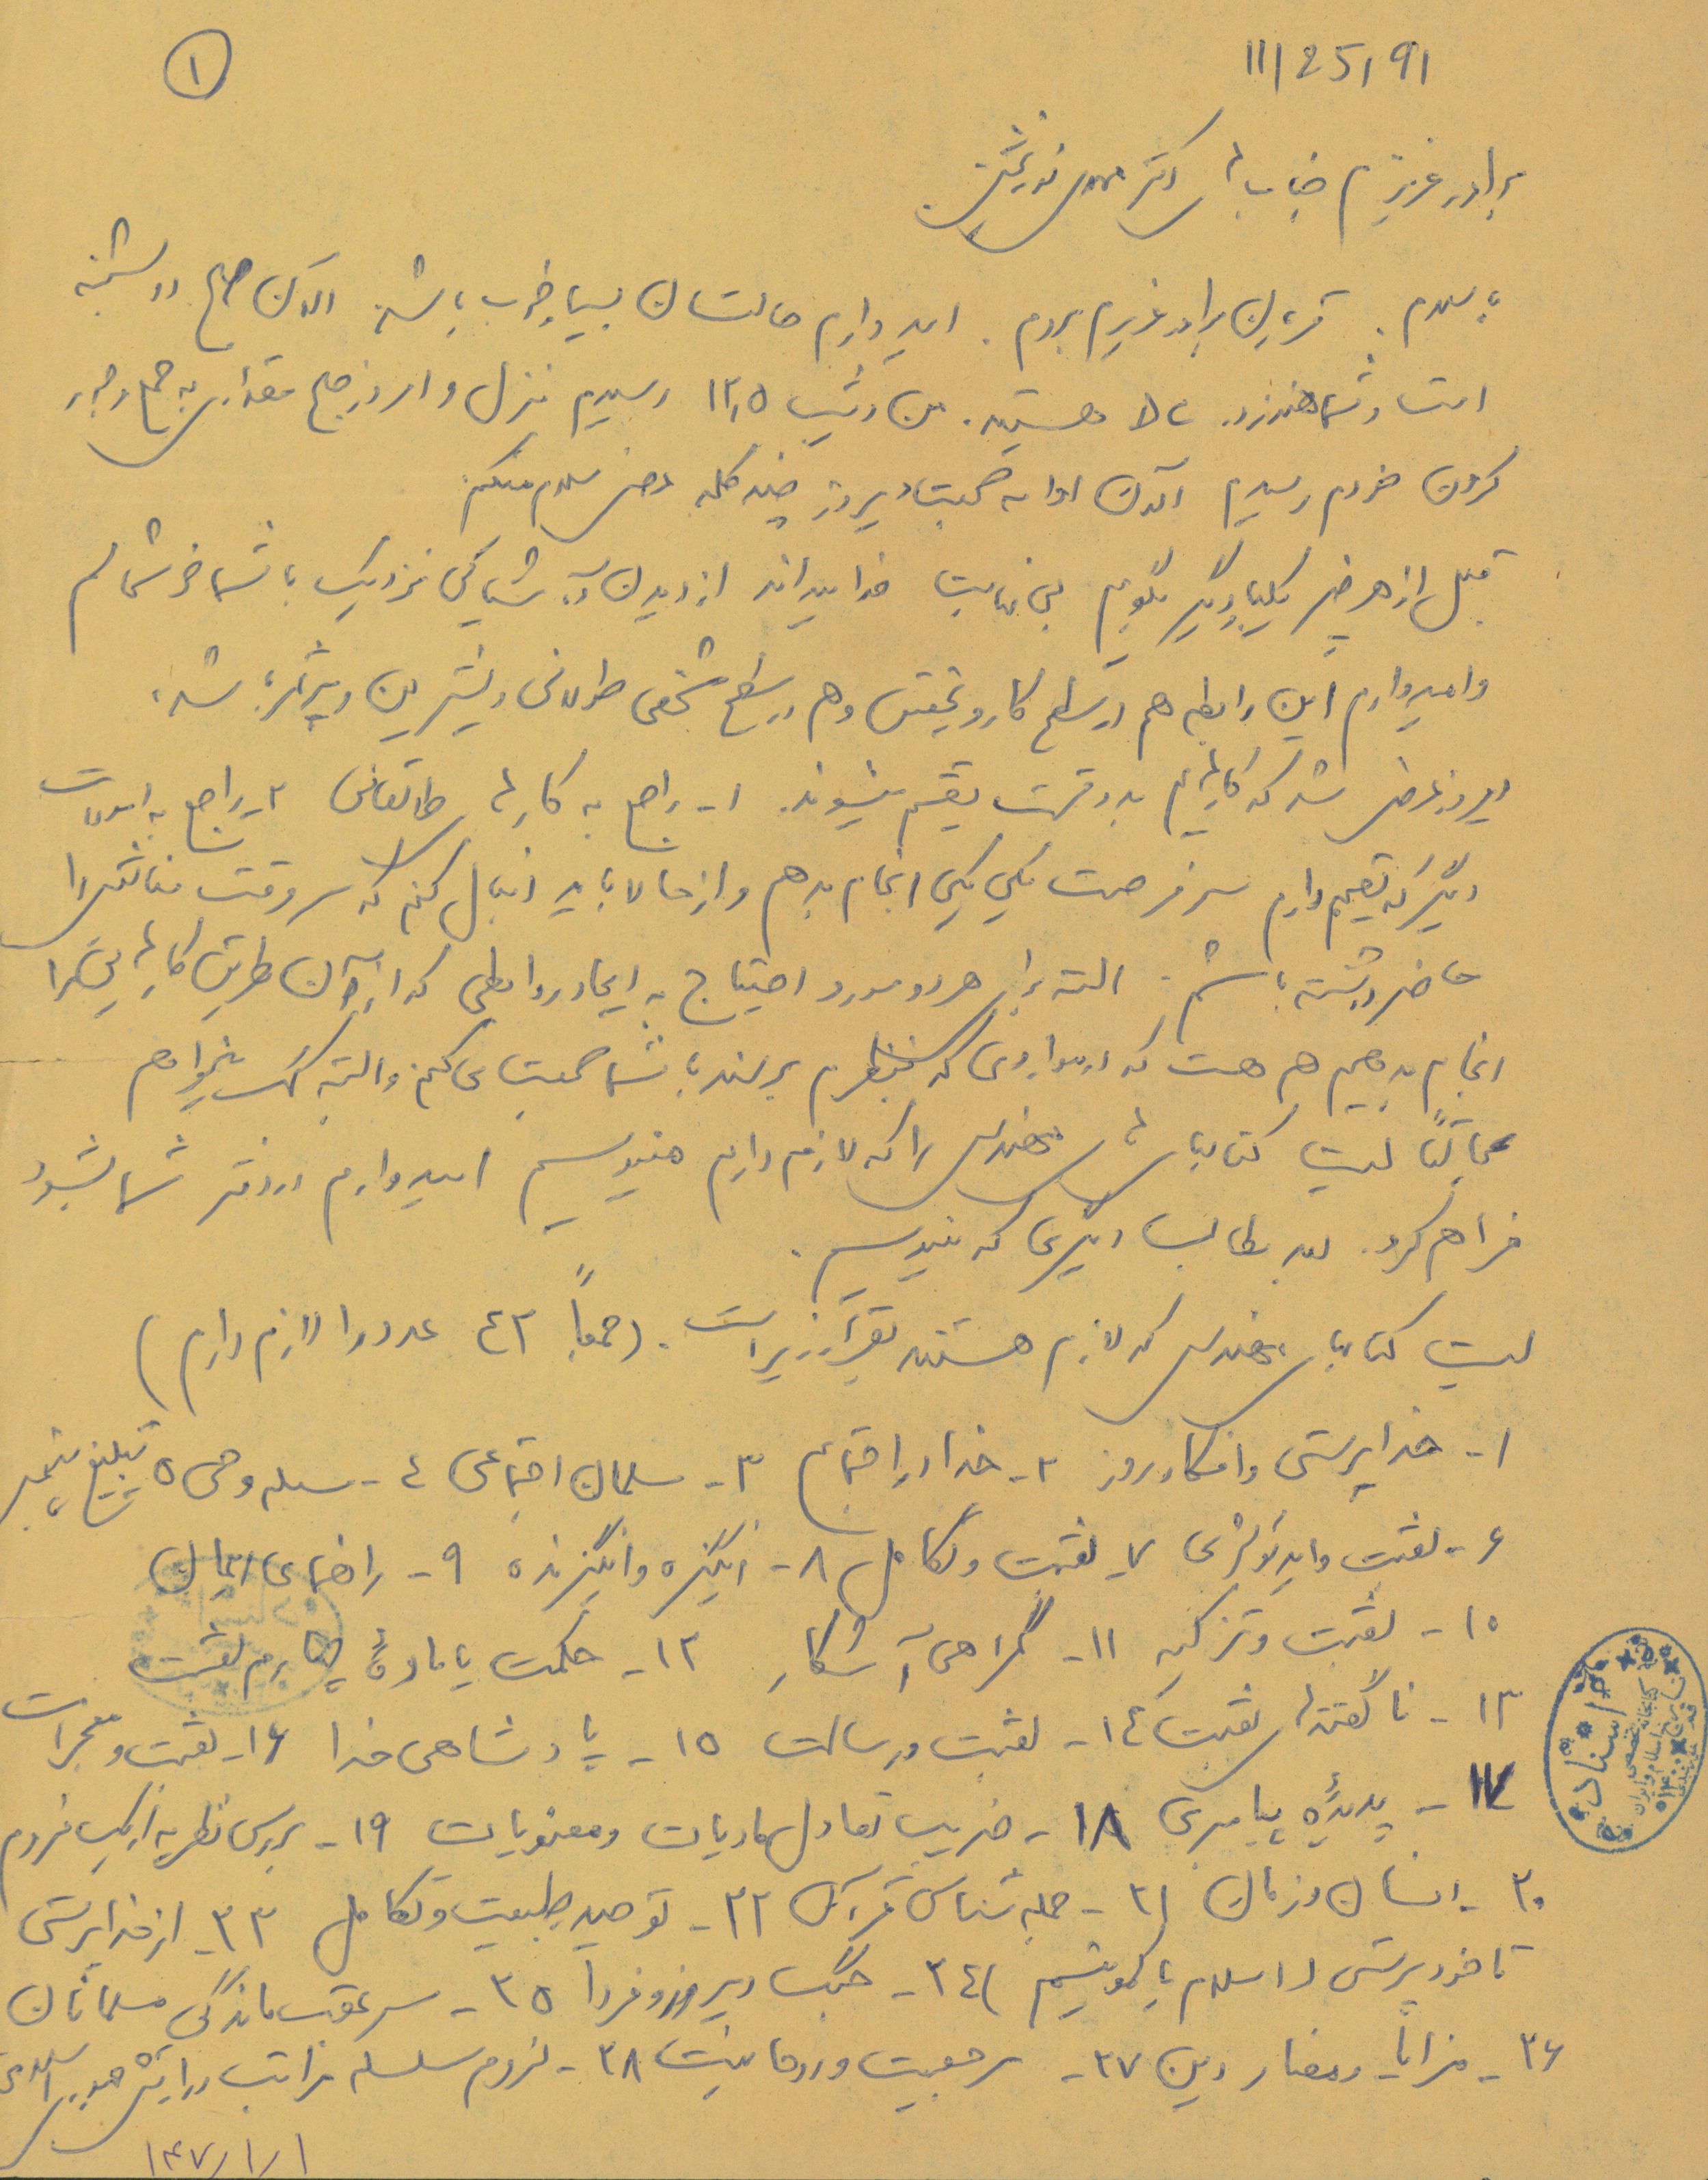 11/25/91
①
برادر عزیزم جناب آقای دکتر نوربخش
با سلام. قربان برادر عزیزم بروم. امیدوارم حالتان بسیار خوب باشد. الان صبح دوشنبه
است و شما هنوز در بالا هستید. من دیشب ۱۲٫۵ رسیدم منزل و امروز صبح مقداری به جمع و جور
کردن خودم رسیدم الان ادامه صحبت دیروز چند کلمه عرض سلام میکنم.
قبل از هر چیز یکبار دیگر بگویم بی نهایت خدا میداند از دیدن و آشنائی نزدیک با شما خوشحالم
و امیدوارم این رابطه هم در سطح کار و تحقیق و هم در سطح شخصی طولانی و شیرین و پرثمر باشد.
دیروز عرض شد که کارهایم به دو قسمت تقسیم میشوند. ۱- راجع به کارهای طالقانی ۲- راجع به
دیگر که تصمیم دارم سر فرصت یکی یکی انجام بدهم و از حالا باید دنبال کنم که سر وقت منابعش را
حاضر داشته باشم. البته برای هر دو مورد احتیاج به ایجاد روابطی که از آن طریق کارهایش را
انجام بدهیم هم هست که در مواردی که بنظرم برسند با شما صحبت می کنم و البته کمک میخواهم
عجالتاً لیست کتابهای مهندس را که لازم دارم مینویسم امیدوارم در دفتر شما بشود
فراهم کرد. بعد مطالب دیگری که مینویسم.
لیست کتابهای مهندس که لازم هستند بقرار زیر است. (جمعاً ۴۳ عدد را لازم دارم)
۱- خداپرستی و افکار روز ۲- خدا در اجتماع ۳- مسلمان اجتماعی ۴- مسئله وحی ۵ تبلیغ پیغمبر
۶- بعثت و ایدئولوژی ۷- بعثت و تکامل ۸- انگیزه و انگیزنده ۹- راهنمای ایمان
۱۰- بعثت و تزکیه ۱۱- گمراهی آشکار ۱۲- حکمت یا ماده چهارم بعثت
۱۳- ناگفته های بعثت ۱۴- بعثت و رسالت ۱۵- پادشاهی خدا ۱۶- بعثت و معجزات
۱۷- پدیده پیامبری ۱۸- ضریب تعادل مادیات و معنویات ۱۹- بررسی نظریه اریک فروم
۲۰- انسان و زمان ۲۱- جمله شناسی قرآن ۲۲- توحید طبیعت و تکامل ۲۳- از خداپرستی
تا خودپرستی (اسلام یا کمونیسم) ۲۴- جنگ دیروز و فردا ۲۵- سر عقب ماندگی مسلمانان
۲۶- مزایا و مضار دین ۲۷- مرجعیت و روحانیت ۲۸- لزوم سلسله مراتب در ارتش جمهوری اسلامی
مرکز اسناد
۱۴۷/۱/۱